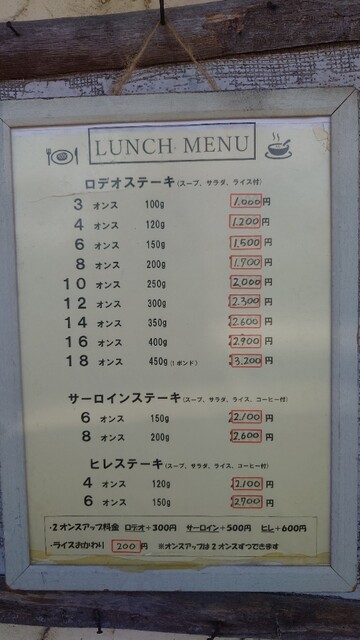 LUNCH MENU
ロデオステーキ(スープ、サラダ、ライス付)
3 オンス 100g 1,000円
4 オンス 120g 1,200円
6 オンス 150g 1,500円
8 オンス 200g 1,700円
10 オンス 250g 2,000円
12 オンス 300g 2,300円
14 オンス 350g 2,600円
16 オンス 400g 2,900円
18 オンス 450g(1ポンド) 3,200円
サーロインステーキ(スープ、サラダ、ライス、コーヒー付)
6 オンス 150g 2,100円
8 オンス 200g 2,600円
ヒレステーキ(スープ、サラダ、ライス、コーヒー付)
4 オンス 120g 2,100円
6 オンス 150g 2,700円
・2オンスアップ料金 ロデオ+300円 サーロイン+500円 ヒレ+600円
・ライスおかわり 200円 ※オンスアップは2オンスずつできます